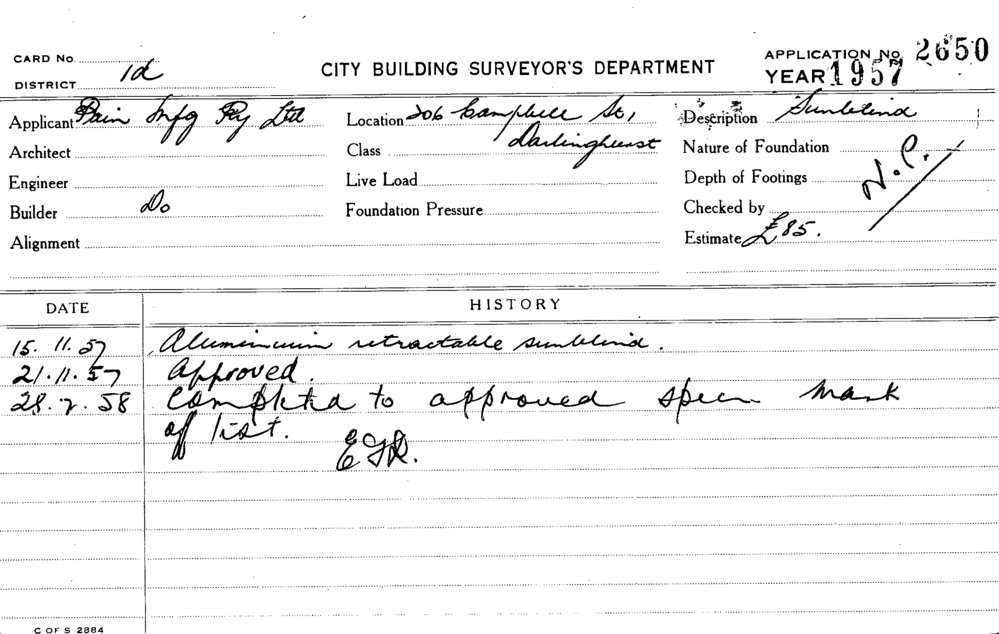 CARD No.
DISTRICT 1d
CITY BUILDING SURVEYOR'S DEPARTMENT
APPLICATION No. 2650
YEAR 1957
Applicant Pain Mfg Py Ltd
Location 206 Campbell St,
Darlinghurst
Description Sunblind
Architect
Class
Nature of Foundation
N.P.
Engineer
Live Load
Depth of Footings
Builder Do
Foundation Pressure
Checked by
Alignment
Estimate £85.
DATE
HISTORY
15. 11. 57 Aluminium retractable sunblind.
21. 11. 57 Approved.
28. 2. 58 Completed to approved specn mark
off list.
C OF S 2884